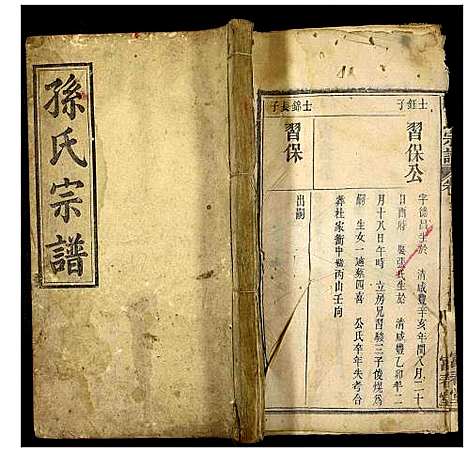 孫氏宗譜
士鈺子
習保公
字德昌生於 清咸豐辛亥年閏八月二十
日酉時 娶張氏生於 清咸豐乙卯年二
月十八日午時 立房兄習駿三子俊槐爲
嗣 生女一適蔡四喜 公氏卒年失考合
葬杜家衝中壠丙山壬向
士錦長子
習保
出嗣
富春堂